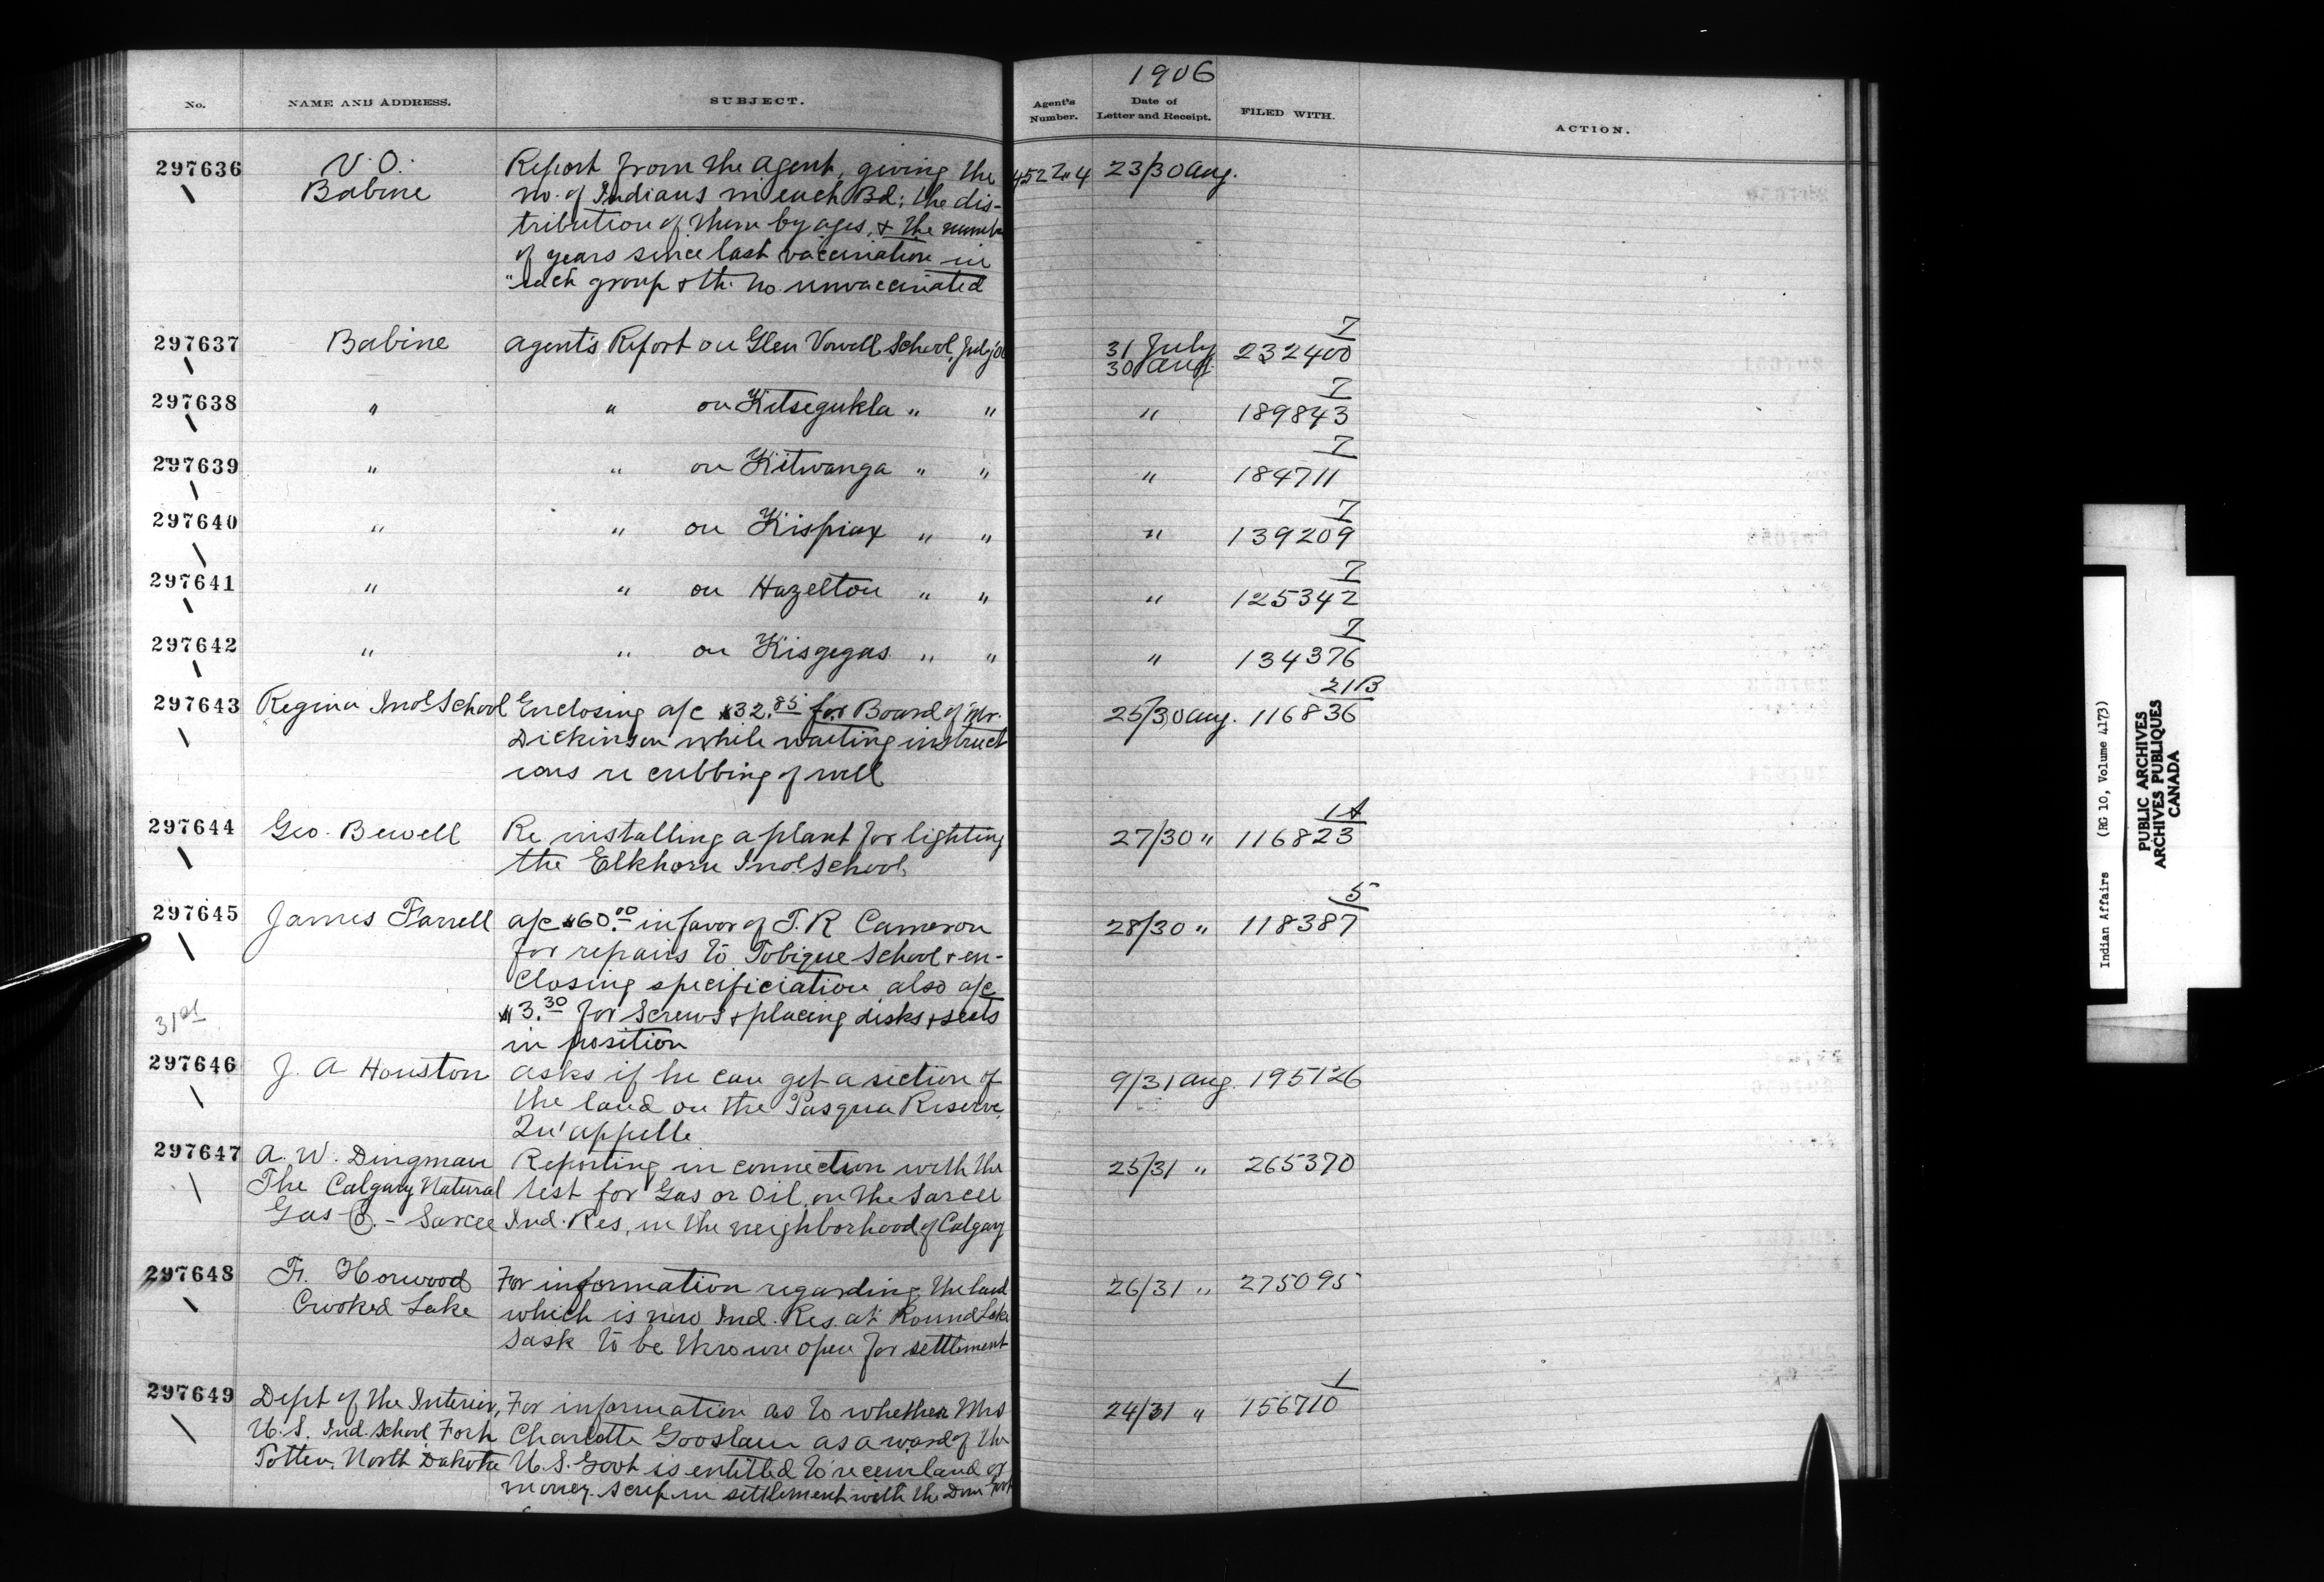 1906
No.	NAME AND ADDRESS.	SUBJECT.	Agent's Number.	Date of Letter and Receipt.	FILED WITH.	ACTION.
297636	V. O.	Report from the agent, giving the	4522"4	23/30 Aug.
Babine	no. of Indians in each Bd; the dis-
tribution of them by ages, & the number
of years since last vaccination in
"each group & the no. unvaccinated
7
297637	Babine	Agent's Report on Glen Vowell School, July '06	31 July	232400
30 Aug.
7
297638	"	"	on Kitsegukla "	"	"	189843
7
297639	"	"	on Kitwanga "	"	"	184711
7
297640	"	"	on Kispiax "	"	"	139209
7
297641	"	"	on Hazelton "	"	"	125342
7
297642	"	"	on Kisgegas "	"	"	134376
21B
297643	Regina Ind School	Enclosing a/c $32.85 for Board of Mr.	25/30 Aug.	116836
Dickinson while waiting instruct
ions re cribbing of well
1A
297644	Geo. Bewell	Re installing a plant for lighting	27/30 "	116823
the Elkhorn Ind. School.
5
297645	James Farrell	a/c $60.00 in favor of T. R Cameron	28/30 "	118387
for repairs to Tobique School & en-
closing specificiation also a/c
31st	$3.30 for screws & placing disks & seats
in position
297646	J. A Houston	asks if he can get a section of	9/31 Aug.	195126
the land on the Pasqua Reserve,
Qu'appelle
297647	A. W. Dingman	Reporting in connection with the	25/31 "	265370
The Calgary Natural	test for Gas or Oil, on the Sarcee
Gas Co. - Sarcee	Ind. Res, in the neighborhood of Calgary
297648	Fr. Horwood	For information regarding the land	26/31 "	275095
Crooked Lake	which is now Ind. Res. at Round Lake
Sask to be thrown open for settlement
1
297649	Dept of the Interior,	For information as to whether Mrs	24/31 "	156710
U. S. Ind. School Fort	Charlotte Gooslaw as a ward of the
Totten, North Dakota	U. S. Govt is entitled to receive land or
money scrip in settlement with the Dom Govt
Indian Affairs (RG 10, Volume 4173)
PUBLIC ARCHIVES
ARCHIVES PUBLIQUES
CANADA